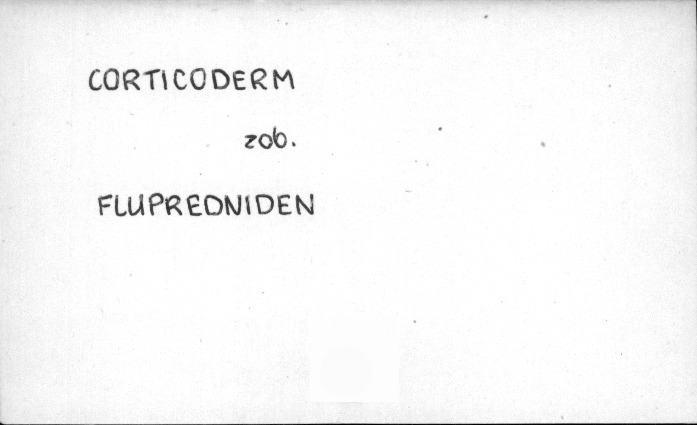 CORTICODERM
zob.
FLUPREDNIDEN